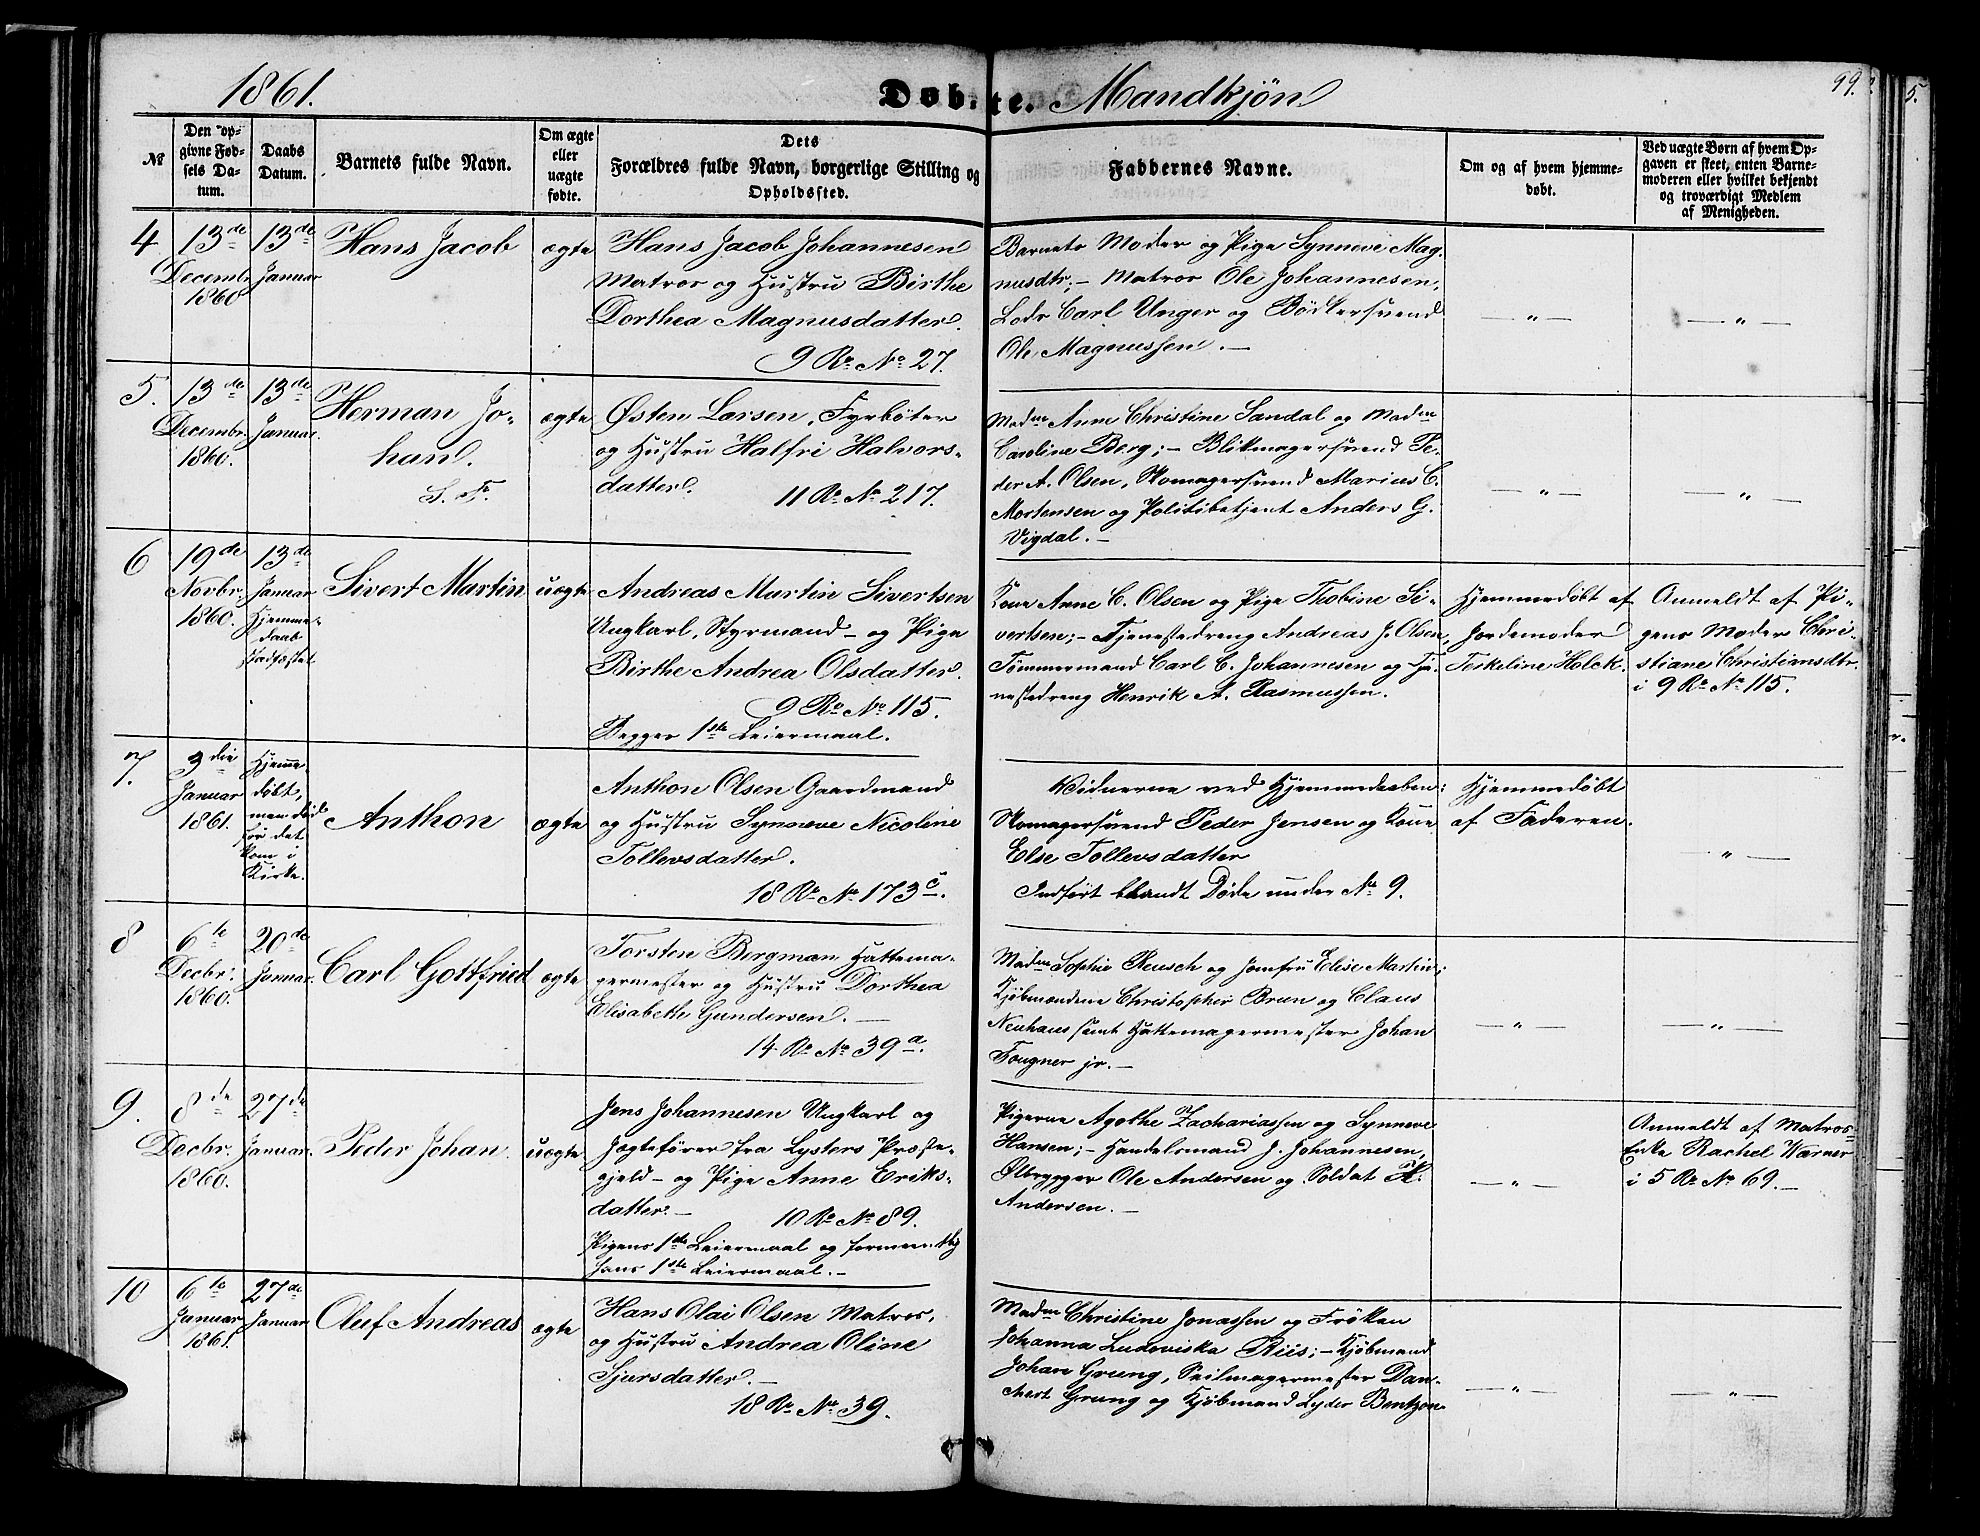 1861.
Døbte. Mandkjøn
99.
№
Den opgivne Fødsels Datum.
Daabs Datum.
Barnets fulde Navn.
Om ægte eller uægte fødte.
Dets Forældres fulde Navn, borgerlige Stilling og Opholdssted.
Faddernes Navne.
Om og af hvem hjemmedøbt.
Ved uægte Børn af hvem Opgaven er skeet, enten Barnemoderen eller hvilket bekjendt og troværdigt Medlem af Menigheden.
4
13de
Decembr.
1860
13de
Januar
Hans Jacob
ægte
Hans Jacob Johannesen
Matros og Hustru Birthe
Dorthea Magnusdatter.
9 Ro No 27.
Barnets Moder og Pige Synneve Mag-
nusdtr; - Matros Ole Johannesen,
Lods Carl Unger og Bödkersvend
Ole Magnussen. -
— „ —
— „ —
5.
13de
Decembr.
1860.
13de
Januar.
Herman Jo-
han.
S. F.
ægte
Østen Larsen, Fyrböter
og Hustru Halfri Halvors-
datter.
11 Ro No 217.
Madm Anne Christine Sandal og Madm
Caroline Berg; - Blikmagersvend Pe-
der A. Olsen, Skomagersvend Marius C.
Mortensen og Politibetjent Anders G.
Vigdal. -
— „ —
— „ —
6
19de
Novbr.
1860.
13de
Januar
Hjemme-
daab
stadfæstet
Sivert Martin
uægte
Andreas Martin Sivertsen
Ungkarl, Styrmand - og Pige
Birthe Andrea Olsdatter.
9 Ro No 115.
Begges 1ste Leiermaal.
Kone Anne C. Olsen og Pige Thobine Si-
vertsen; - Tjenestedreng Andreas J. Olsen,
Tömmermand Carl C. Johannesen og Tje-
nestedreng Henrik A. Rasmussen.
Hjemmedöbt af
Jordemoder
Terkeline Holck.
Anmeldt af Pi-
gens Moder Chri-
stiane Christensdtr.
i 9 Ro No 115.
7.
3die
Januar
1861.
Hjemme-
döbt,
men död
för det
kom i
Kirke.
Anthon
ægte
Anthon Olsen Gaardmand
og Hustru Synneve Nicoline
Tollevsdatter.
18 Ro No 173 c.
Vidnerne ved Hjemmedaaben:
Skomagersvend Peder Jensen og Kone
Else Tollevsdatter
Indfört blandt Döde under No 9.
Hjemmedöbt
af Faderen.
— „ —
8
6te
Decbr.
1860.
20de
Januar.
Carl Gottfried
ægte
Torsten Bergman Hattema-
germester og Hustru Dorthea
Elisabeth Gundersen. —
14 Ro No 39 a.
Madm Sophie Reusch og Jomfru Elise Martin;
Kjöbmændene Christopher Brun og Claus
Neuhaus samt Hattemagermester Johan
Fougner jr. -
— „ —
— „ —
9.
8de
Decbr.
1860.
27de
Januar.
Peder Johan.
uægte
Jens Johannesen Ungkarl og
Jægtefører fra Lysters Præste-
gjeld - og Pige Anne Eriks-
datter. -
10 Ro No 89.
Pigens 1ste Leiermaal og formeentlig
hans 1ste Leiermaal. -
Pigerne Agathe Zachariassen og Synneve
Hansen; - Handelsmand J. Johannesen,
Ølbrygger Ole Andersen og Soldat R.
Andersen. -
— „ —
Anmeldt af Matros-
Enke Rachel Warner
i 5 Ro No 69. -
10
6te
Januar
1861.
27de
Januar
Oluf Andreas
ægte
Hans Olai Olsen Matros,
og Hustru Andrea Oline
Sjursdatter. -
18 Ro No 39.
Madm Christine Jonassen og Fröken
Johanna Ludoviska Riis; - Kjöbmand
Johan Grung, Seilmagermester Dan-
chert Grung og Kjöbmand Lyder Bentzon
— „ —
— „ —